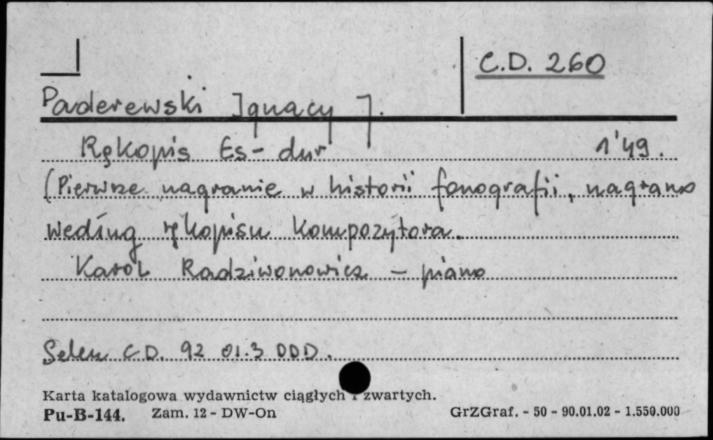 C.D. 260
Paderewski Ignacy J.
Rękopis Es-dur 1'49.
(Pierwsze nagranie w historii fonografii, nagrano
według rękopisu kompozytora.
Karol Radziwonowicz - piano
Selene CD. 92 01.3 DDD.
Karta katalogowa wydawnictw ciągłych i zwartych.
Pu-B-144. Zam. 12 - DW-On GrZGraf. - 50 - 90.01.02 - 1.550.000